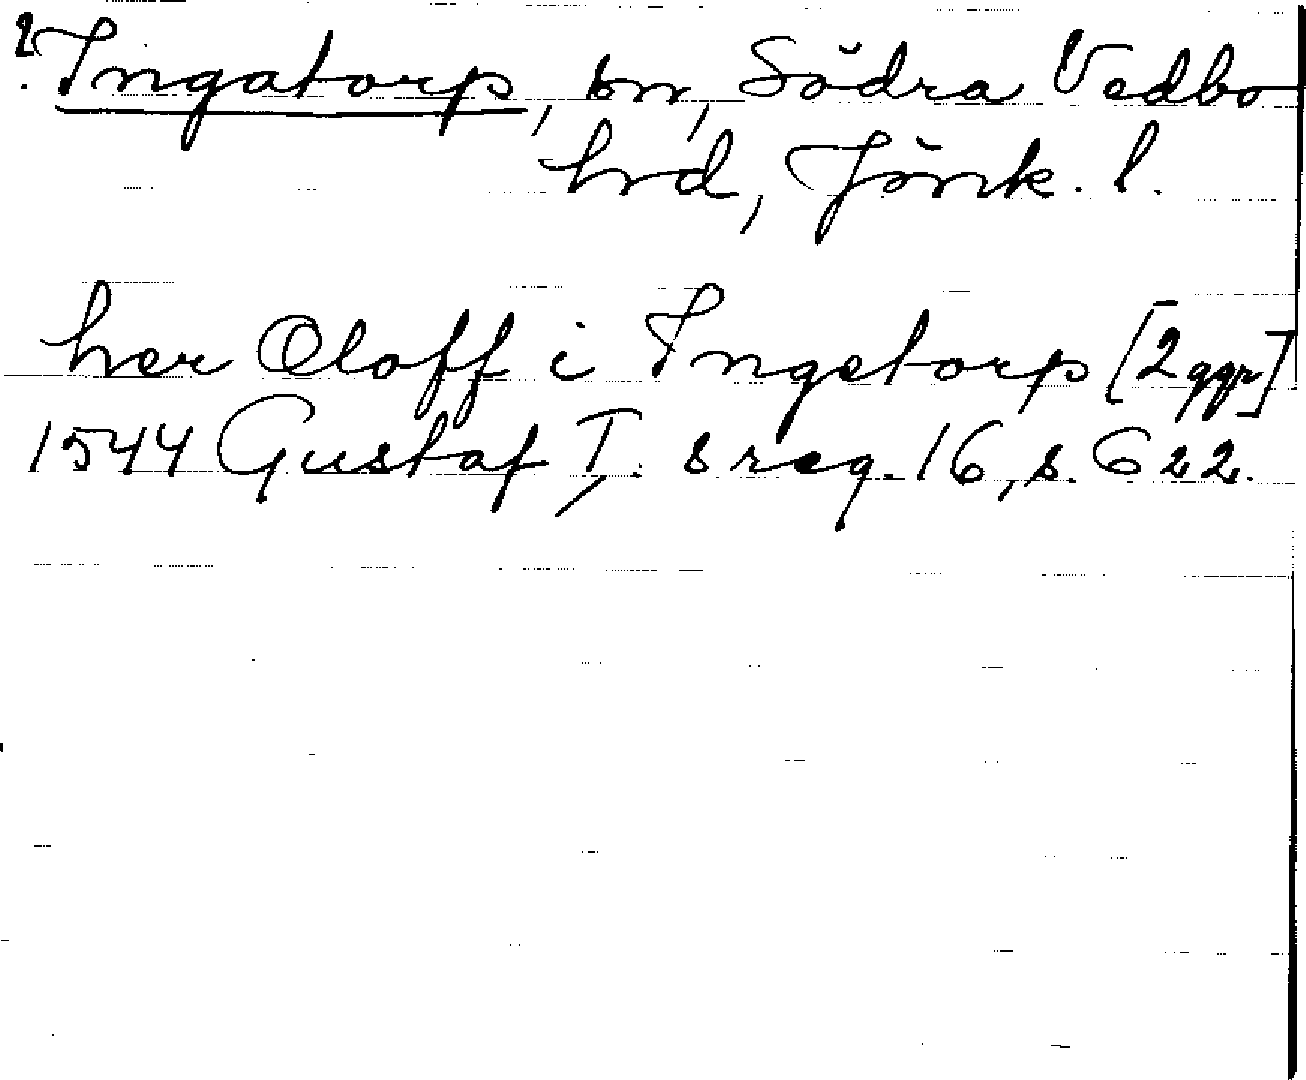 ? Ingatorp, sn, Södra Vedbo
hrd, Jönk. l.
her Oloff i Ingetorp [2 ggr]
1544 Gustaf I. s reg. 16, s. 622.